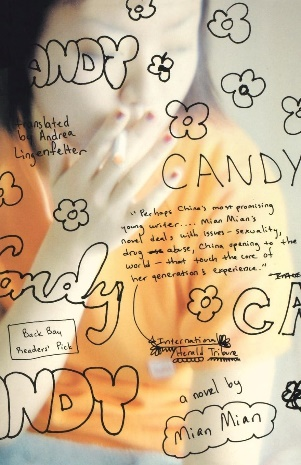 ANDY
translated
by Andrea
Lingenfelter
CANDY
"Perhaps China's most promising
young writer.... Mian Mian's
novel deals with issues - sexuality,
drug abuse, China opening to the
world - that touch the core of
her generation's experience."
Candy
CA
Back Bay
Readers' Pick
International
Herald Tribune
ANDY
a novel by
Mian Mian